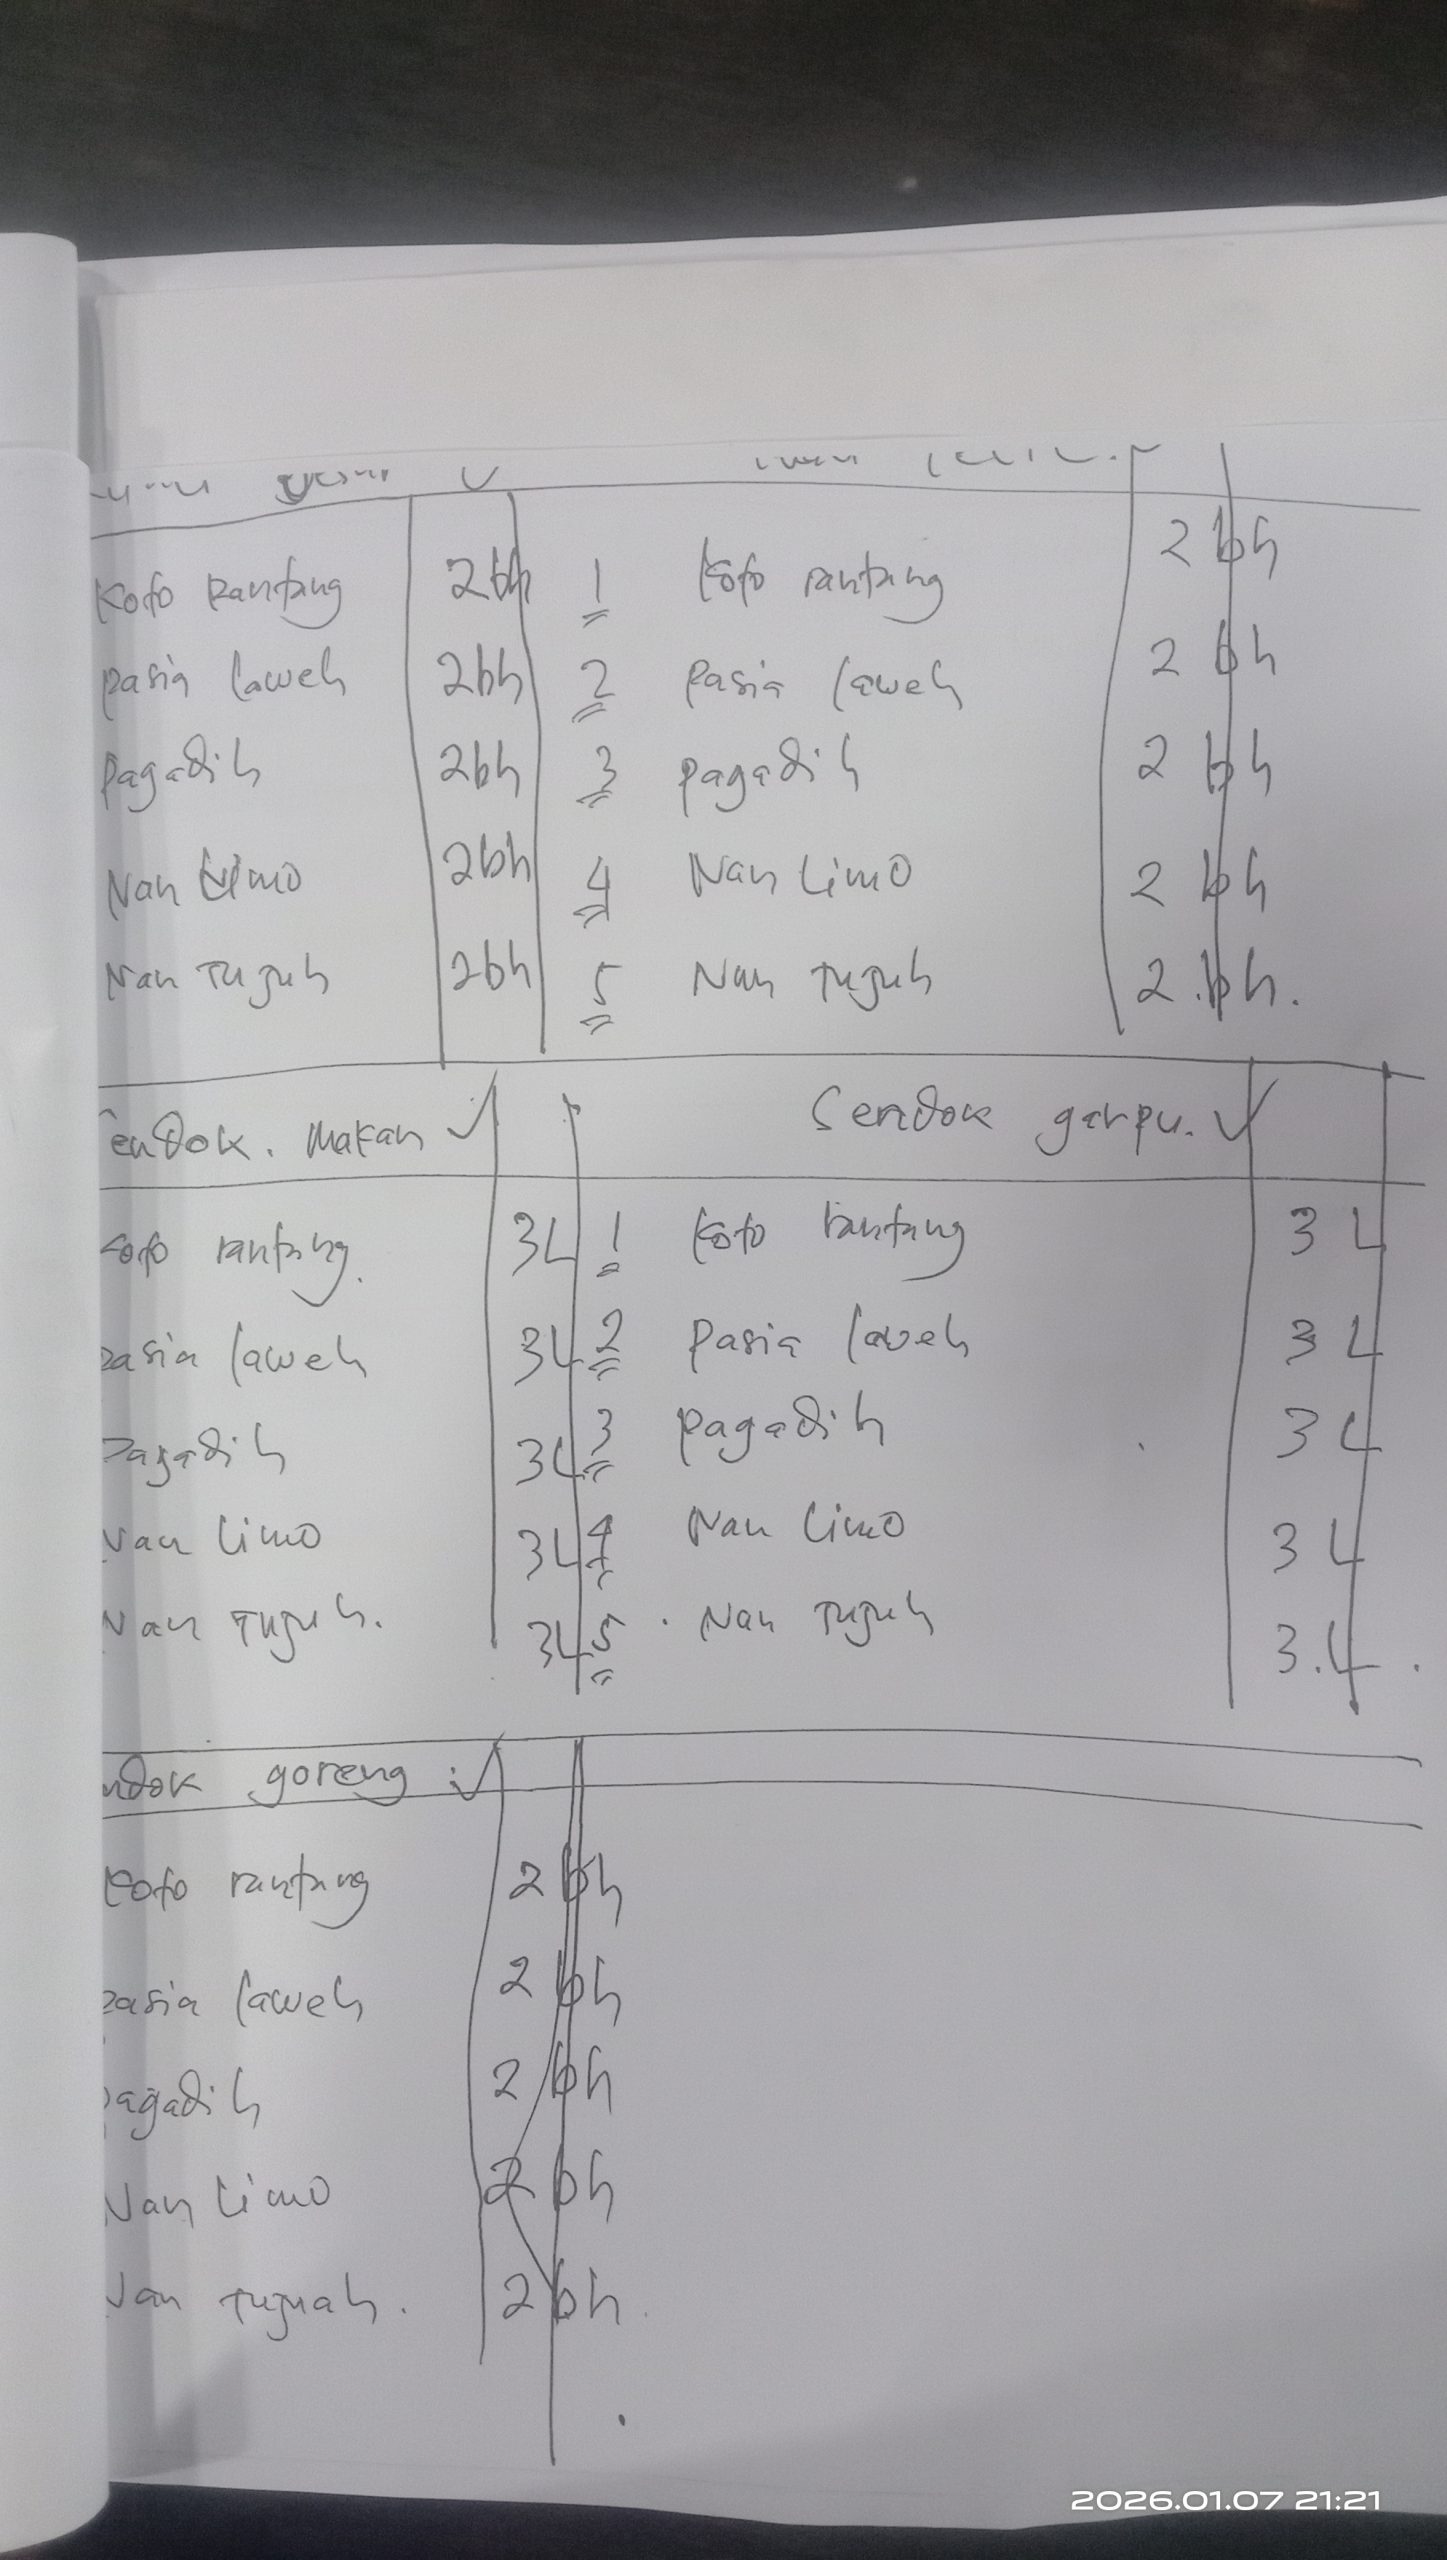 Koto Rantang 2bh 1 Koto rantang 2 bh
pasia laweh 2bh 2 Pasia laweh 2 bh
Pagadih 2bh 3 pagadih 2 bh
Nan Limo 2bh 4 Nan Limo 2 bh
Nan Tujuh 2bh 5 Nan Tujuh 2.bh.
endok. Makan Sendok garpu.
oto rantang. 3L 1 Koto rantang 3 L
asia laweh 3L 2 Pasia laweh 3 L
agadih 3L 3 pagadih 3 L
Nan Limo 3L 4 Nan Limo 3 L
Nan Tujuh. 3L 5 . Nan Tujuh 3.L.
ndok goreng
Koto rantang 2 bh
asia laweh 2 bh
agadih 2 bh
Nan Limo 2 bh
Nan Tujuah. 2 bh.
2026.01.07 21:21